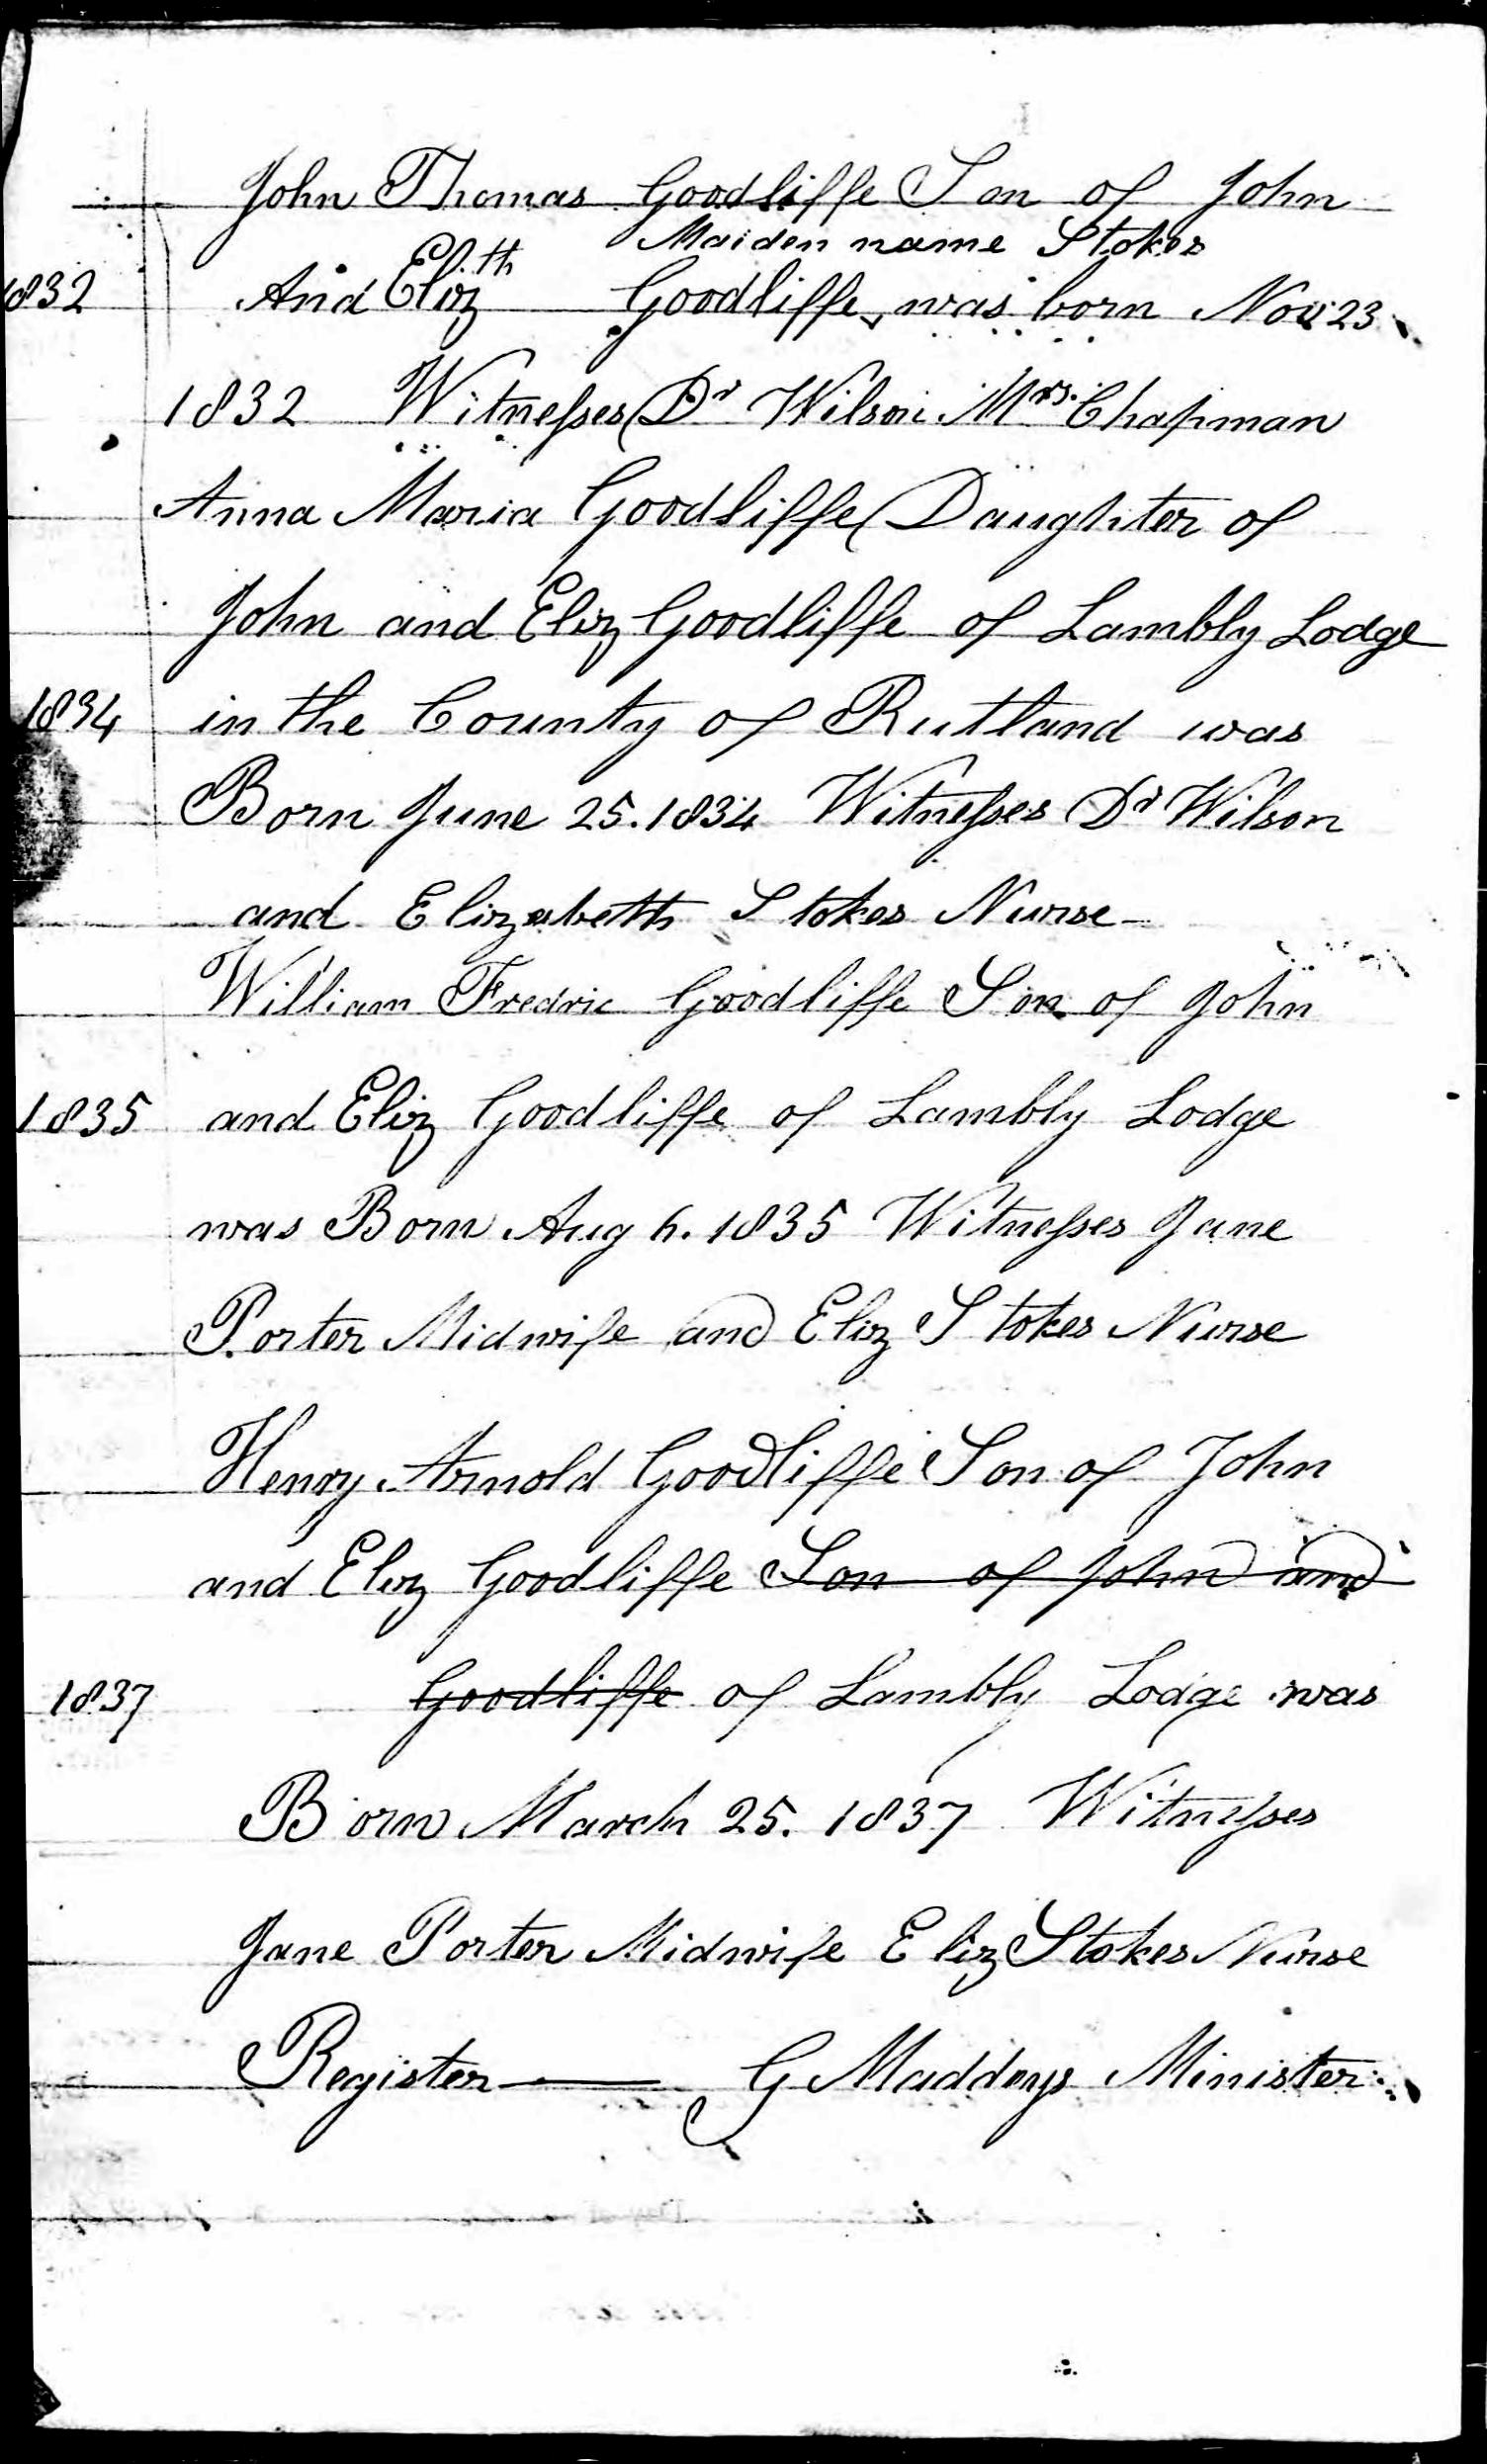 John Thomas Goodliffe Son of John
Maiden name Stokes
1832 And Elizth Goodliffe, was born Nov 23
1832 Witnesses Dr Wilson Mrs. Chapman
Anna Maria Goodliffe Daughter of
John and Eliz Goodliffe of Lambly Lodge
1834 in the County of Rutland was
Born June 25. 1834 Witnesses Dr Wilson
and Elizabeth Stokes Nurse
William Fredric Goodliffe Son of John
1835 and Eliz Goodliffe of Lambly Lodge
was Born Aug 6. 1835 Witnesses Jane
Porter Midwife and Eliz Stokes Nurse
Henry Arnold Goodliffe Son of John
and Eliz Goodliffe Son of John and
1837 Goodliffe of Lambly Lodge was
Born March 25. 1837 Witnesses
Jane Porter Midwife Eliz Stokes Nurse
Register — G Maddeys Minister